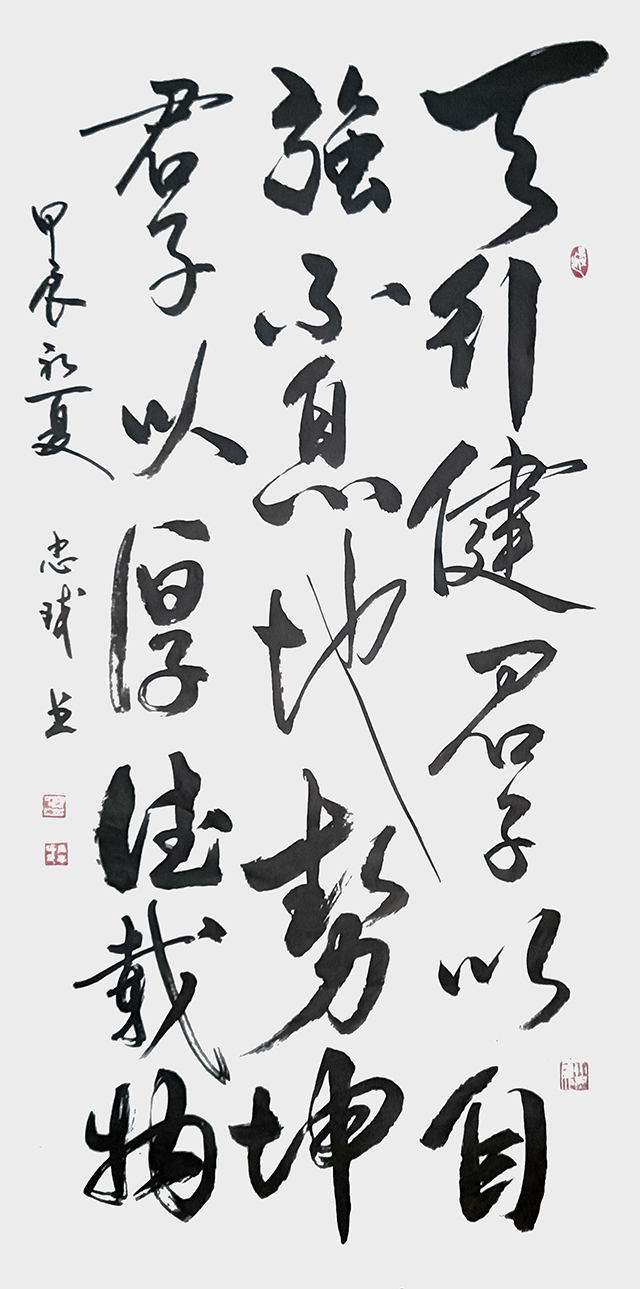 天行健君子以自
強不息地勢坤
君子以厚德載物
甲辰初夏
忠球書